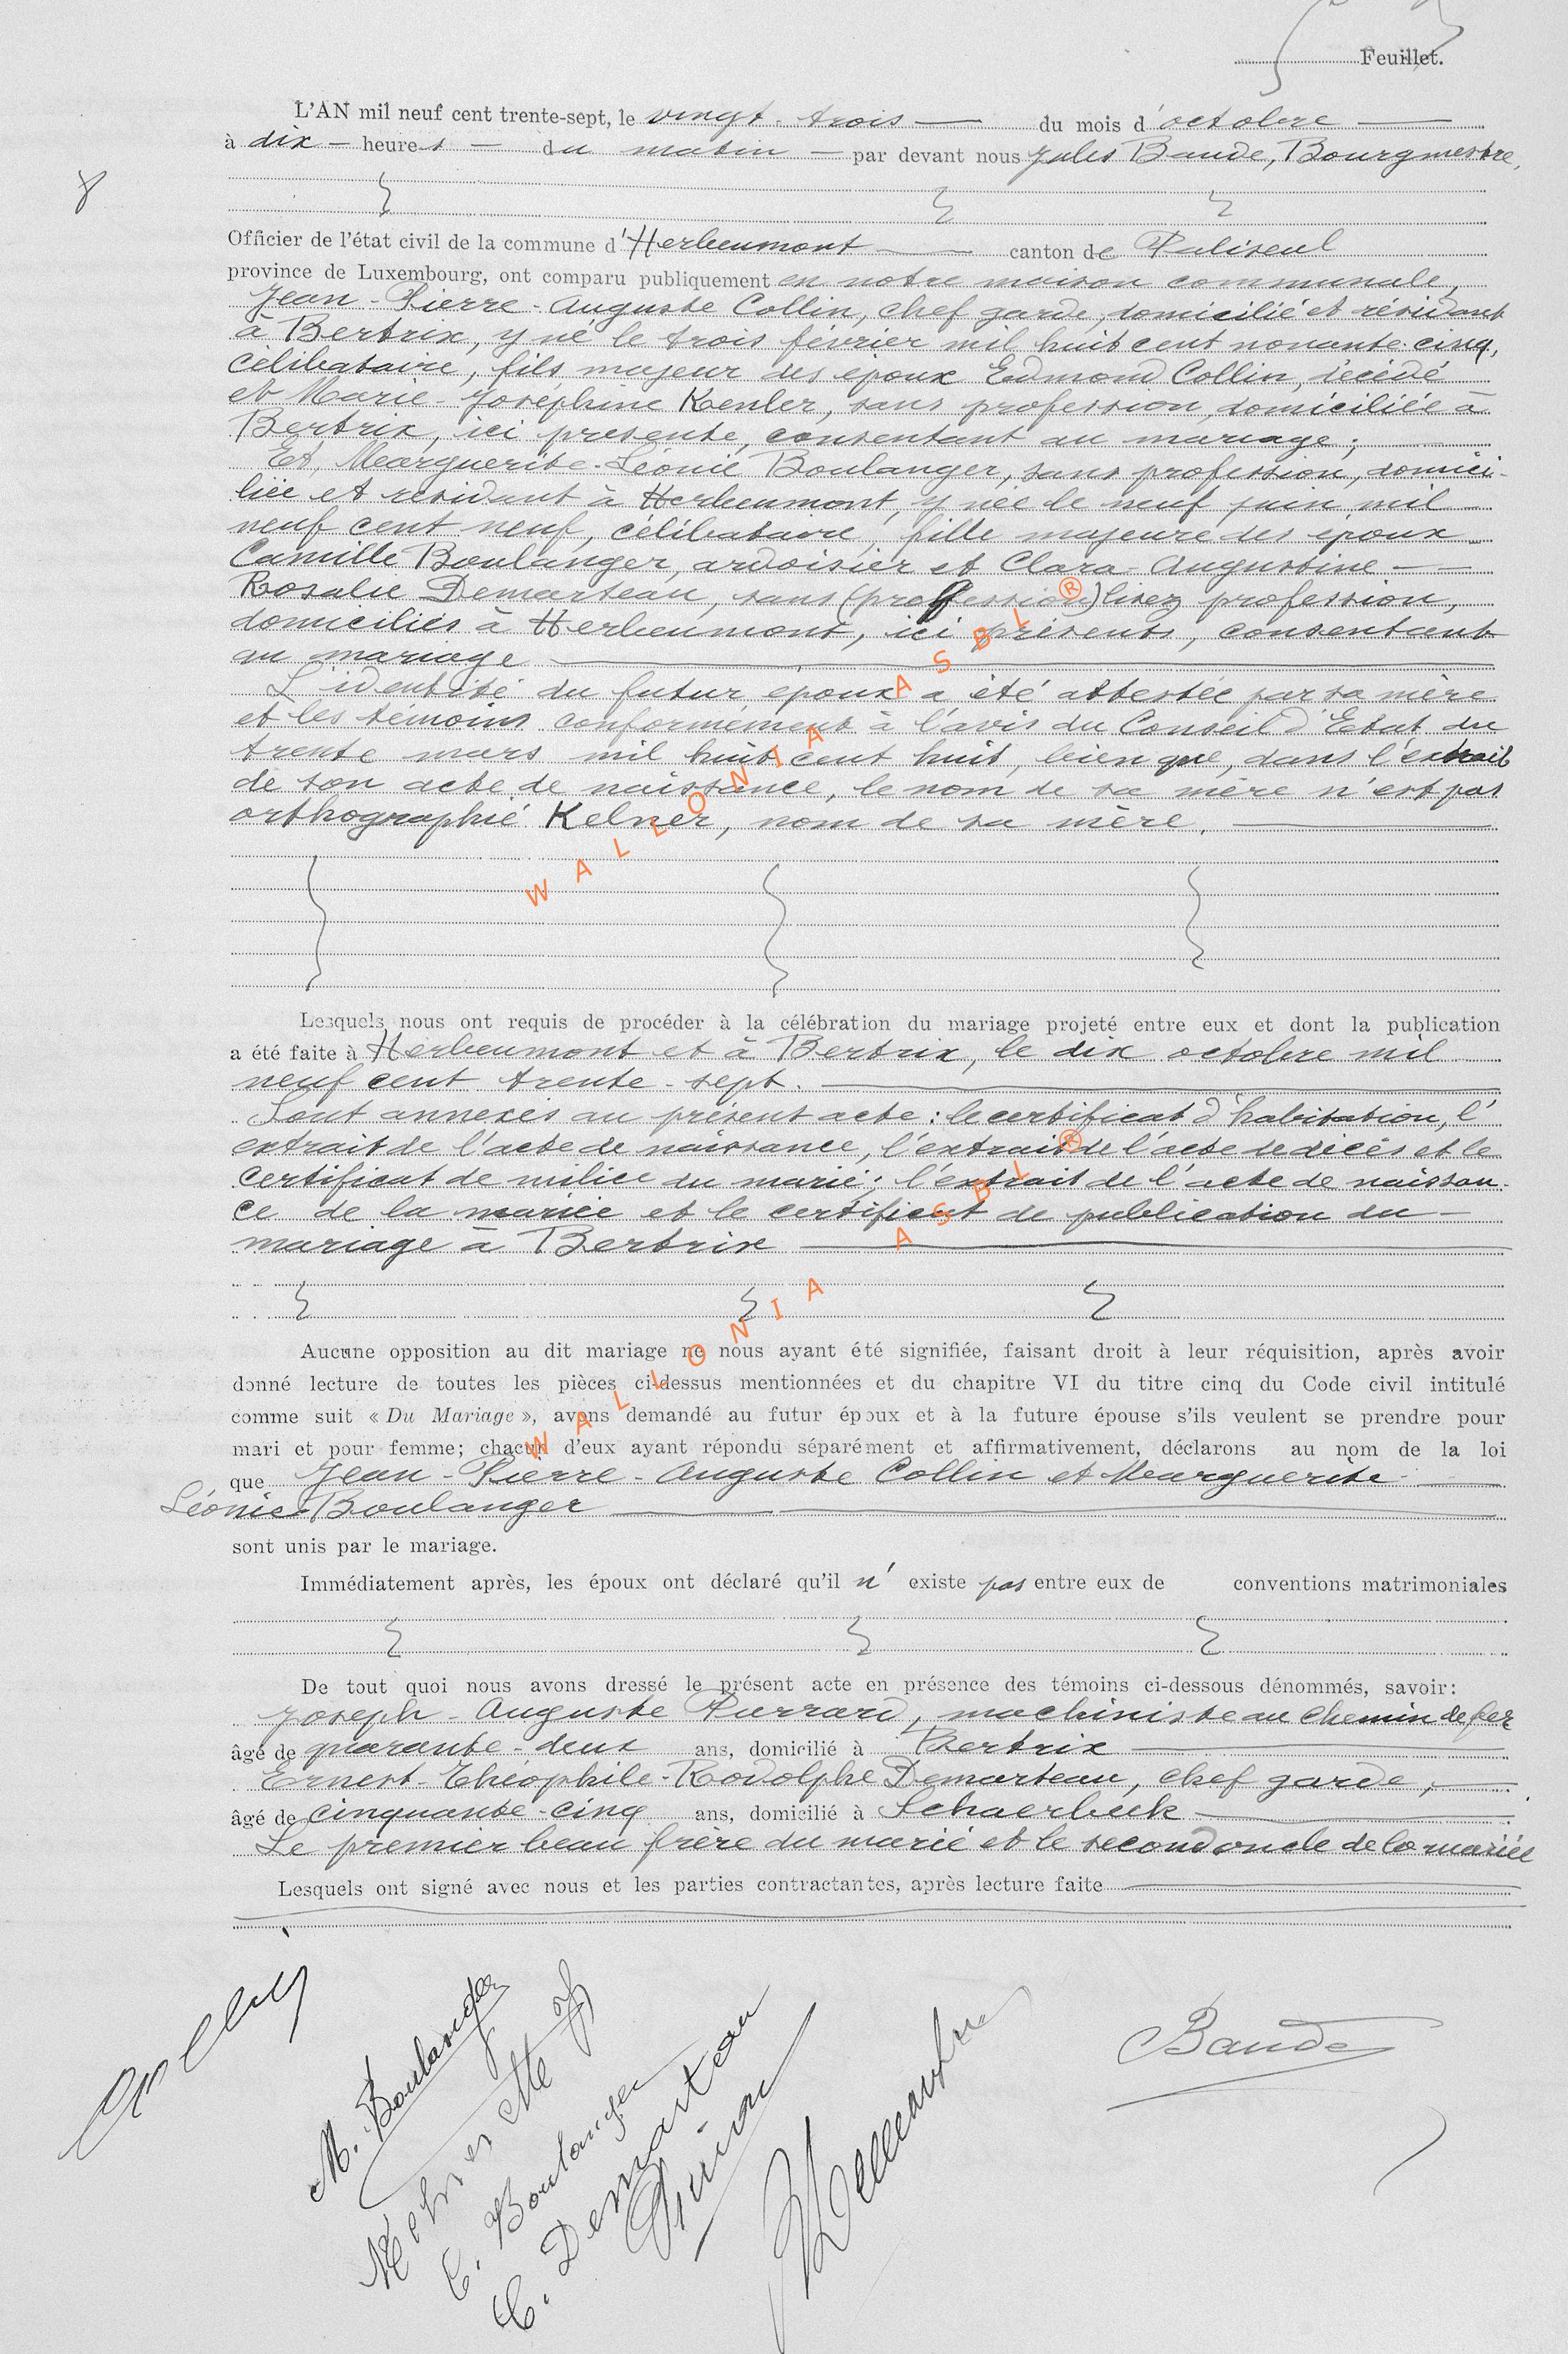 Feuillet.
L'AN mil neuf cent trente-sept, le vingt-trois du mois d'octobre
à dix heures du matin par devant nous Jules Baude, Bourgmestre,
8
Officier de l'état civil de la commune d'Herbeumont canton de Paliseul
province de Luxembourg, ont comparu publiquement en notre maison communale,
Jean-Pierre-Auguste Collin, chef garde, domicilié et résidant
à Bertrix, y né le trois février mil huit cent nonante-cinq,
célibataire, fils majeur des époux Edmond Collin, décédé
et Marie-Joséphine Kenler, sans profession, domiciliée à
Bertrix, ici présente, consentant au mariage;
Et, Marguerite-Léonie Boulanger, sans profession, domici-
liée et résidant à Herbeumont, y née le neuf juin mil
neuf cent neuf, célibataire, fille majeure des époux
Camille Boulanger, ardoisier et Clara-Augustine
Rosalie Demarteau, sans (proffession) lisez profession,
domiciliés à Herbeumont, ici présents, consentant
au mariage
L'identité du futur époux a été attestée par sa mère
et les témoins conformément à l'avis du Conseil d'Etat du
trente mars mil huit cent huit, bien que, dans l'extrait
de son acte de naissance, le nom de sa mère n'est pas
orthographié Kelner, nom de sa mère.
Lesquels nous ont requis de procéder à la célébration du mariage projeté entre eux et dont la publication
a été faite à Herbeumont et à Bertrix, le dix octobre mil
neuf cent trente-sept.
Sont annexés au présent acte: le certificat d'habitation, l'
extrait de l'acte de naissance, l'extrait de l'acte de décès et le
certificat de milice du marié; l'extrait de l'acte de naissan-
ce de la mariée et le certificat de publication du
mariage à Bertrix
Aucune opposition au dit mariage ne nous ayant été signifiée, faisant droit à leur réquisition, après avoir
donné lecture de toutes les pièces ci-dessus mentionnées et du chapitre VI du titre cinq du Code civil intitulé
comme suit « Du Mariage », avons demandé au futur époux et à la future épouse s'ils veulent se prendre pour
mari et pour femme; chacun d'eux ayant répondu séparément et affirmativement, déclarons au nom de la loi
que Jean-Pierre-Auguste Collin et Marguerite-
Léonie Boulanger
sont unis par le mariage.
Immédiatement après, les époux ont déclaré qu'il n'existe pas entre eux de conventions matrimoniales
De tout quoi nous avons dressé le présent acte en présence des témoins ci-dessous dénommés, savoir:
Joseph-Auguste Purrard, machiniste au chemin de fer
âgé de quarante-deux ans, domicilié à Bertrix
Ernest-Théophile-Rodolphe Demarteau, chef garde,
âgé de cinquante-cinq ans, domicilié à Schaerbeek
Le premier beau frère du marié et le second oncle de la mariée
Lesquels ont signé avec nous et les parties contractantes, après lecture faite
Collin
M. Boulanger
C. Boulanger
C. Demarteau
Baude
WALLONIA ASBL ®
WALLONIA ASBL ®